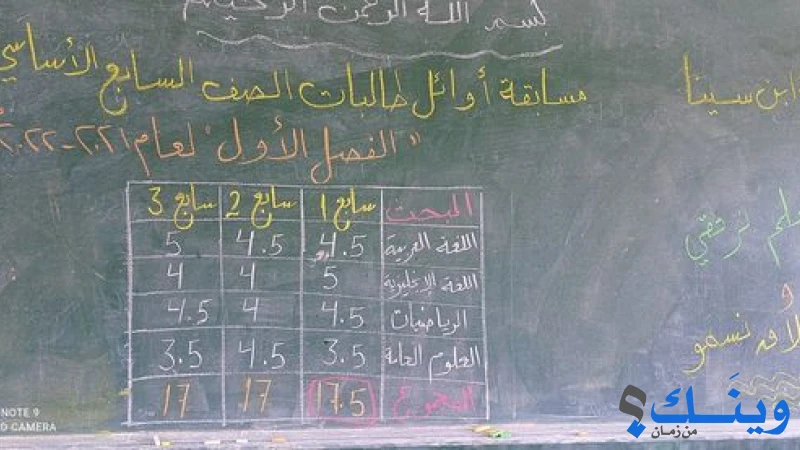 بسم الله الرحمن الرحيم
مسابقة أوائل طالبات الصف السابع الأساسي
ابن سينا
"الفصل الأول" لعام ٢٠٢١-٢٠٢٢
المبحث سابع 1 سابع 2 سابع 3
اللغة العربية 4.5 4.5 5
اللغة الإنجليزية 5 4 4
الرياضيات 4.5 4 4.5
العلوم العامة 3.5 4.5 3.5
المجموع 17.5 17 17
لنرتقي
و
نسمو
NOTE 9
D CAMERA
وينك؟
من زمان